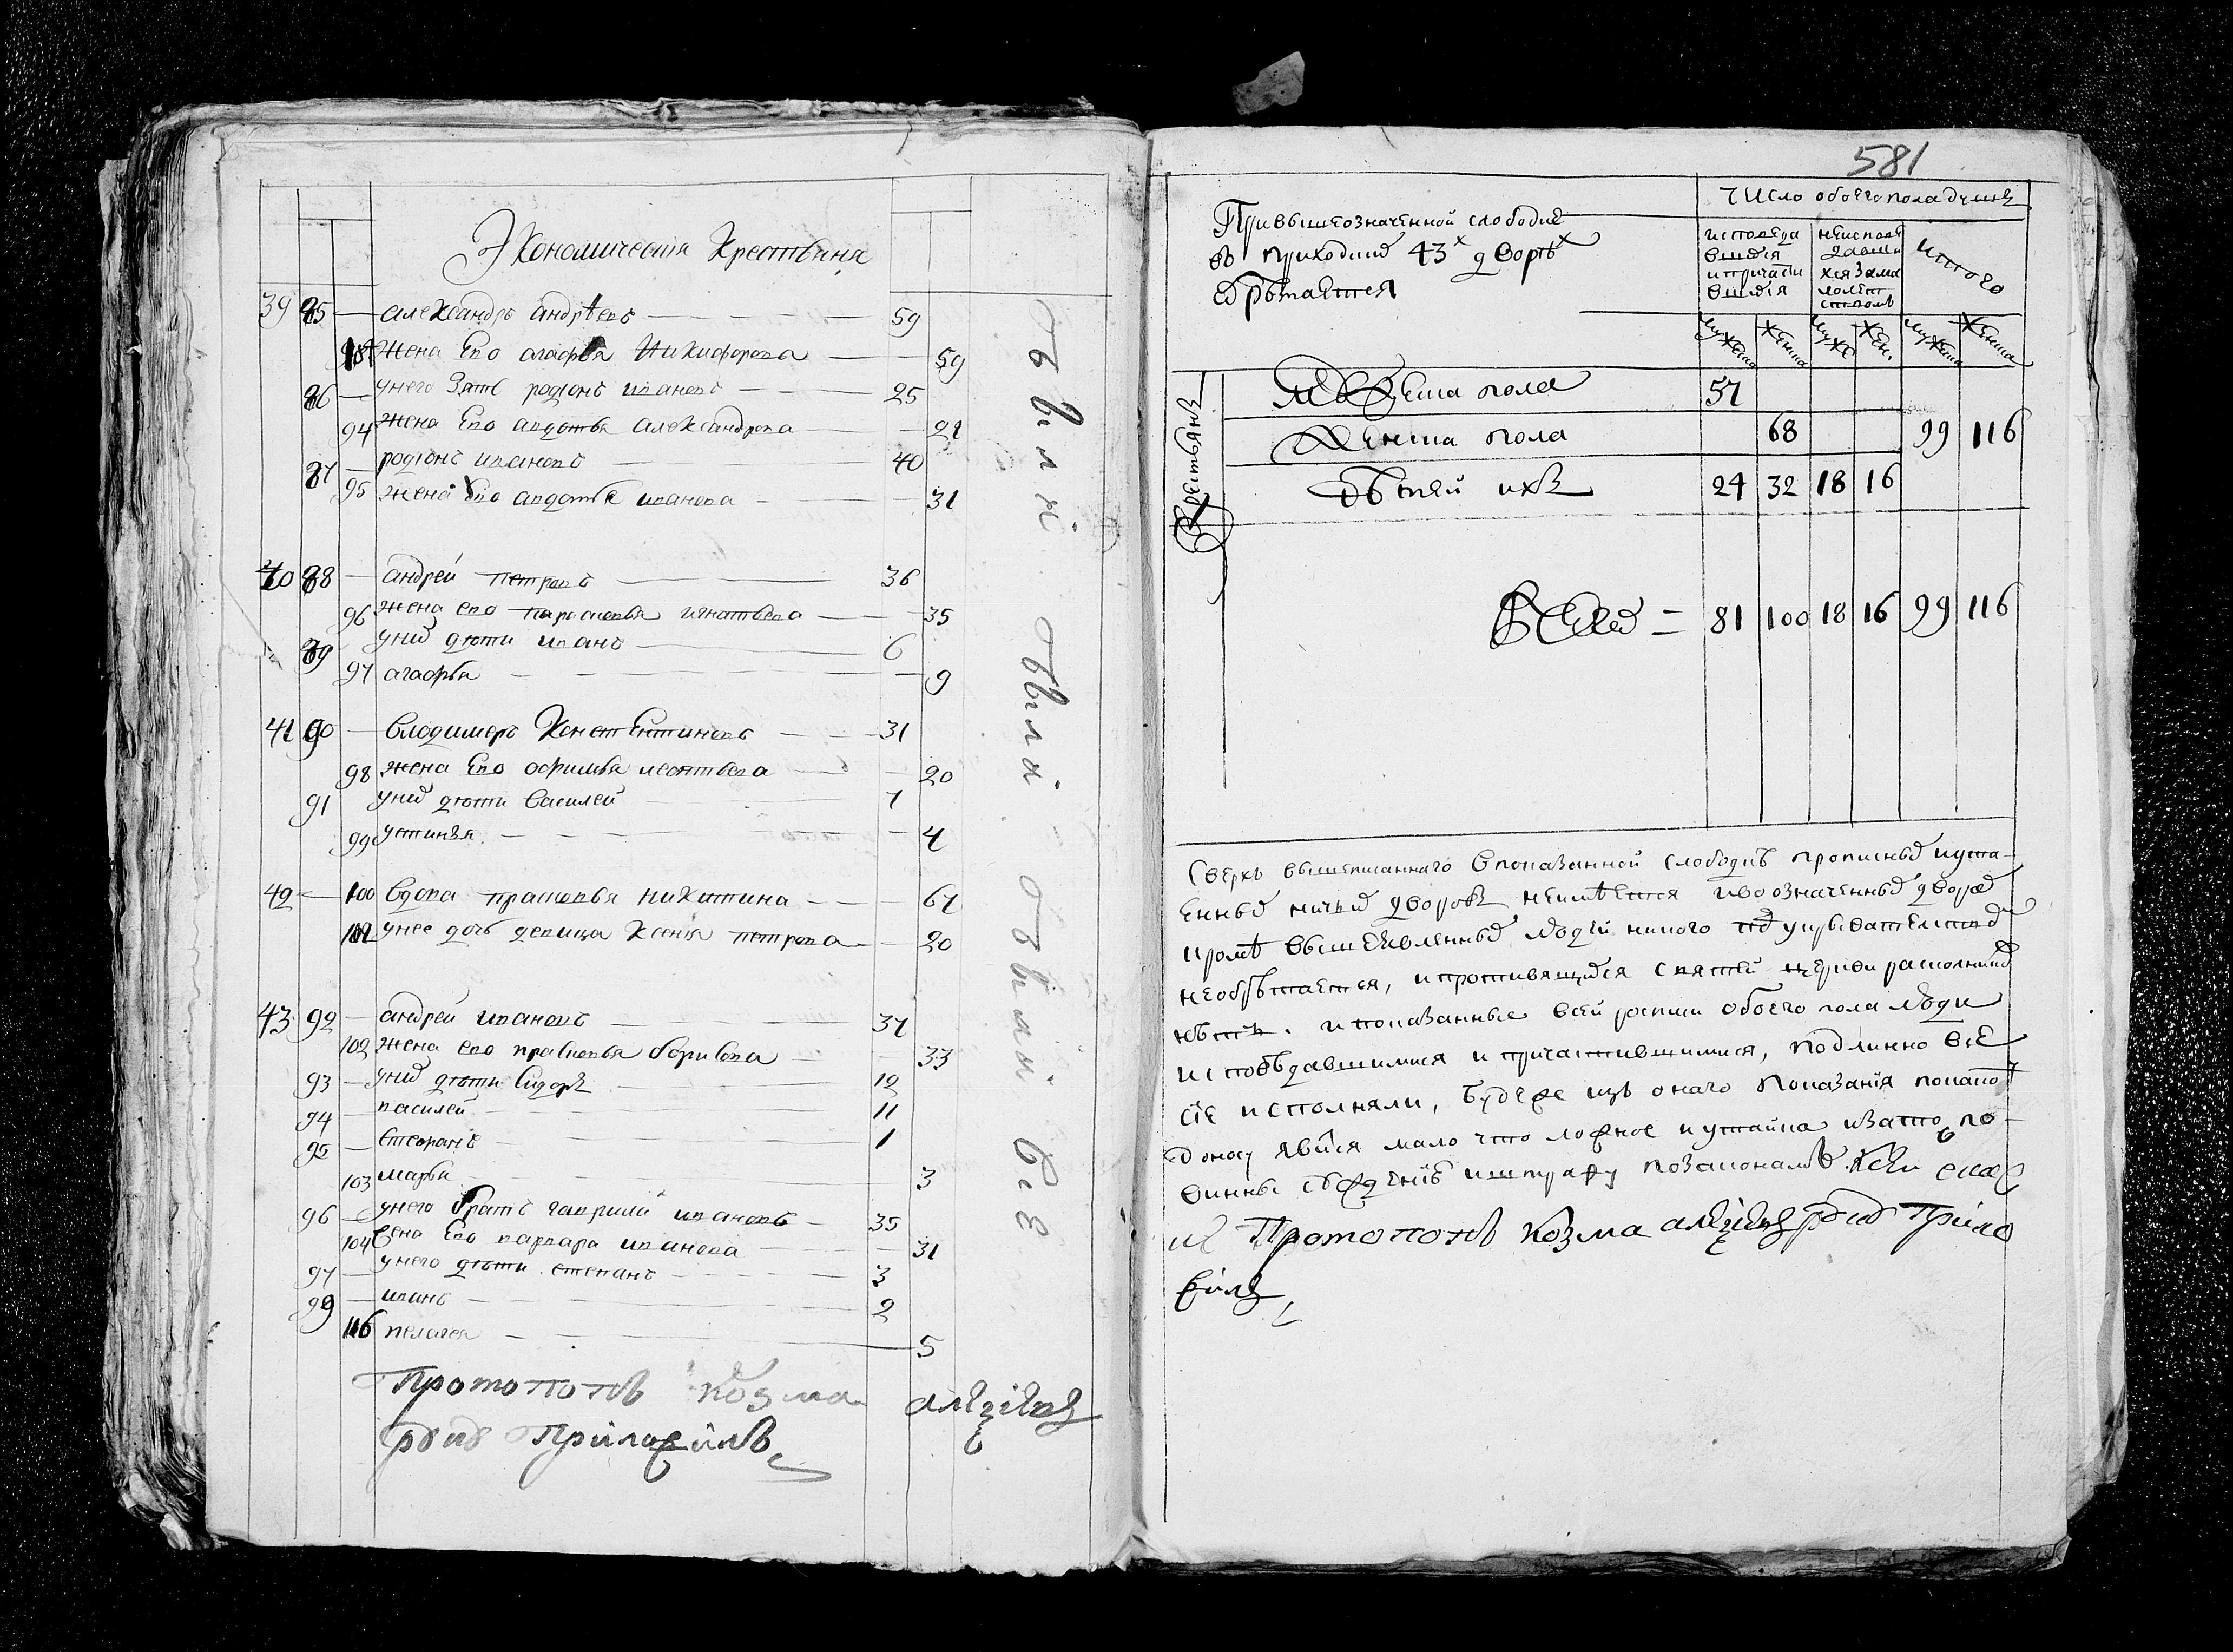 Экономическия Крестьяня
39 85 — александръ андрѣевъ — 59
жена ево агафья Никифорова — 59
86 — унего зять родионъ ивановъ — 25
94 жена ево авдотья александрова — 21
87 — родионъ ивановъ — 40
95 жена ево авдотья иванова — 31
40 88 — андрей петровъ — 36
96 жена ево парасковья игнатьева — 35
89 унихъ дѣти иванъ — 6
97 агафья — 9
41 90 — владимеръ Констентиновъ — 31
98 жена ево офимья леонтьева — 20
91 унихъ дѣти василей — 7
99 устинья — 4
42 — 100 вдова прасковья никитина — 67
унее дочь девица ксенiя петрова — 20
43 92 — андрей ивановъ — 37
102 жена ево прасковья борисова — 33
93 — унихъ дѣти сидоръ — 12
94 — василей — 11
95 — стефанъ — 1
103 марья — 3
96 — унего братъ гаврила ивановъ — 35
104 жена ево варвара иванова — 31
97 — унего дѣти степанъ — 3
иванъ — 2
116 пелагея — 5
Протопопъ козма алеѯiевъ
руку приложилъ
были были были все
581
Привышеозначенной слободие
въ приходцкихъ 43х дворѣх
обрѣтается
число обоего пола душъ
исповеда
вшихся
ипричасти
вшихся
неиспове
давши
хся зама
лолет
ствомъ
итого
мужеска
женска
муже
жен.
мужеска
женска
Крестьянъ
Мужеска пола 57
Женска пола 68 99 116
дѣтей ихъ 24 32 18 16
Всехъ = 81 100 18 16 99 116
Сверхъ вышеписаннаго впоказанной слободѣ прописныхъ иута-
енныхъ ничьихъ дворовъ неимѣется ивозначенныхъ дворахъ
кромѣ вышеявленныхъ людей никого
необрѣтается, ипротивящихся святей церкви раскольниковъ
нѣтъ. ипоказанные всей росписи обоего пола люди
исповѣдавшимися и причастившимися, подлинно все
сiе исполняли, буде же изъ онаго показанiя покакомꙋ
доносу явится мало что ложное иутайка изато по-
винны сꙋжденiю иштрафу позаконамъ. Ксей сказ
ке Протопопъ козма алеѯiевъ руку прило
жилъ